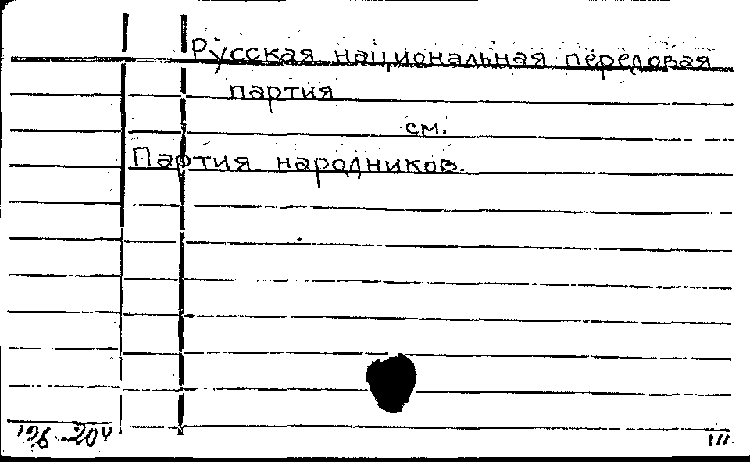 Русская национальная передовая
партия
см.
Партия народников.